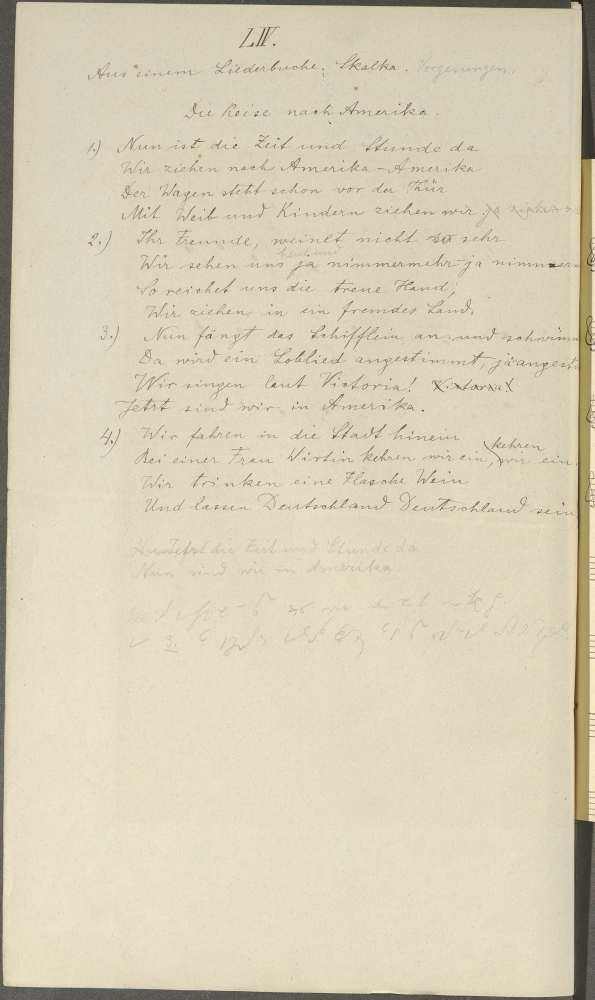 LIV.
Aus einem Liederbuche: Skalka. Vorgesungen.
Die Reise nach Amerika.
1.) Nun ist die Zeit und Stunde da
Wir ziehen nach Amerika-Amerika
Der Wagen steht schon vor der Thür
Mit Weib und Kindern ziehen wir, ja ziehen
2.) Ihr Freunde, weinet nicht so sehr
Wir sehen uns ja nimmermehr-ja nimmer
So reichet uns die treue Hand,
Wir ziehen in ein fremdes Land.
3.) Nun fängt das Schifflein an und schwimm
Da wird ein Loblied angestimmt, ja angesti
Wir singen laut Victoria! Victoria!
Jetzt sind wir in Amerika.
4.) Wir fahren in die Stadt hinein
kehren
Bei einer Frau Wirtin kehren wir ein, wir ein.
Wir trinken eine Flasche Wein
Und lassen Deutschland Deutschland sein
die Zeit und Stunde da
Nun sind wir in Amerika.